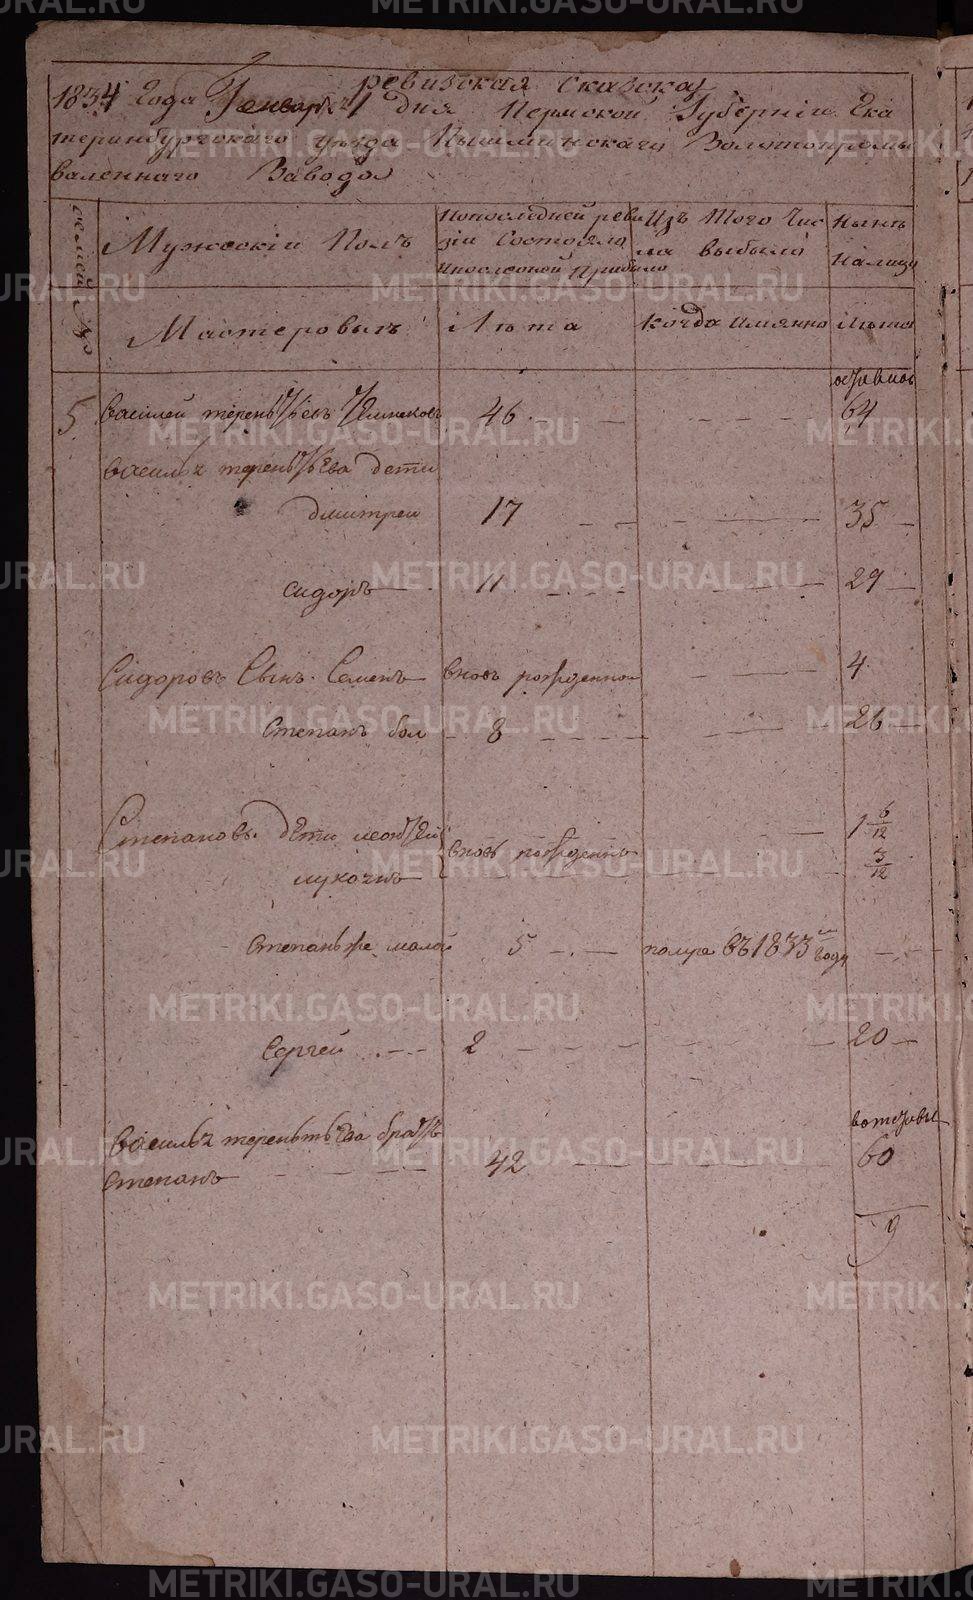 ревизская сказка
1834 года Генваря 1 дня Пермской Губернии Ека
теринбургскаго уезда Пышминскаго Золотопромы
валеннаго Завода
семей №
Мужескии Полъ
Попоследней реви
зіи состояло
ипослеоной прибыло
Изъ того чис
ла выбыло
Ныне
налицо
Мастеровыхъ
Лѣта
Когда имянно
Лѣта
5
Василей терентьевъ
46
64
Василья терентьева дети
дмитреи
17
35
сидоръ
11
29
Сидоровъ Сынъ Семенъ
вновь рожденной
4
Степанъ бол
8
26
Степановы дети
вновь рожденны
1 6/12
3/12
Степанъ же малой
5
помре въ 1833 м году
Сергей
2
20
Василья терентьева братъ
Степанъ
42
60
9
METRIKI.GASO-URAL.RU